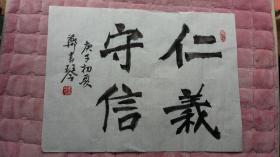 仁義
守信
庚子初夏